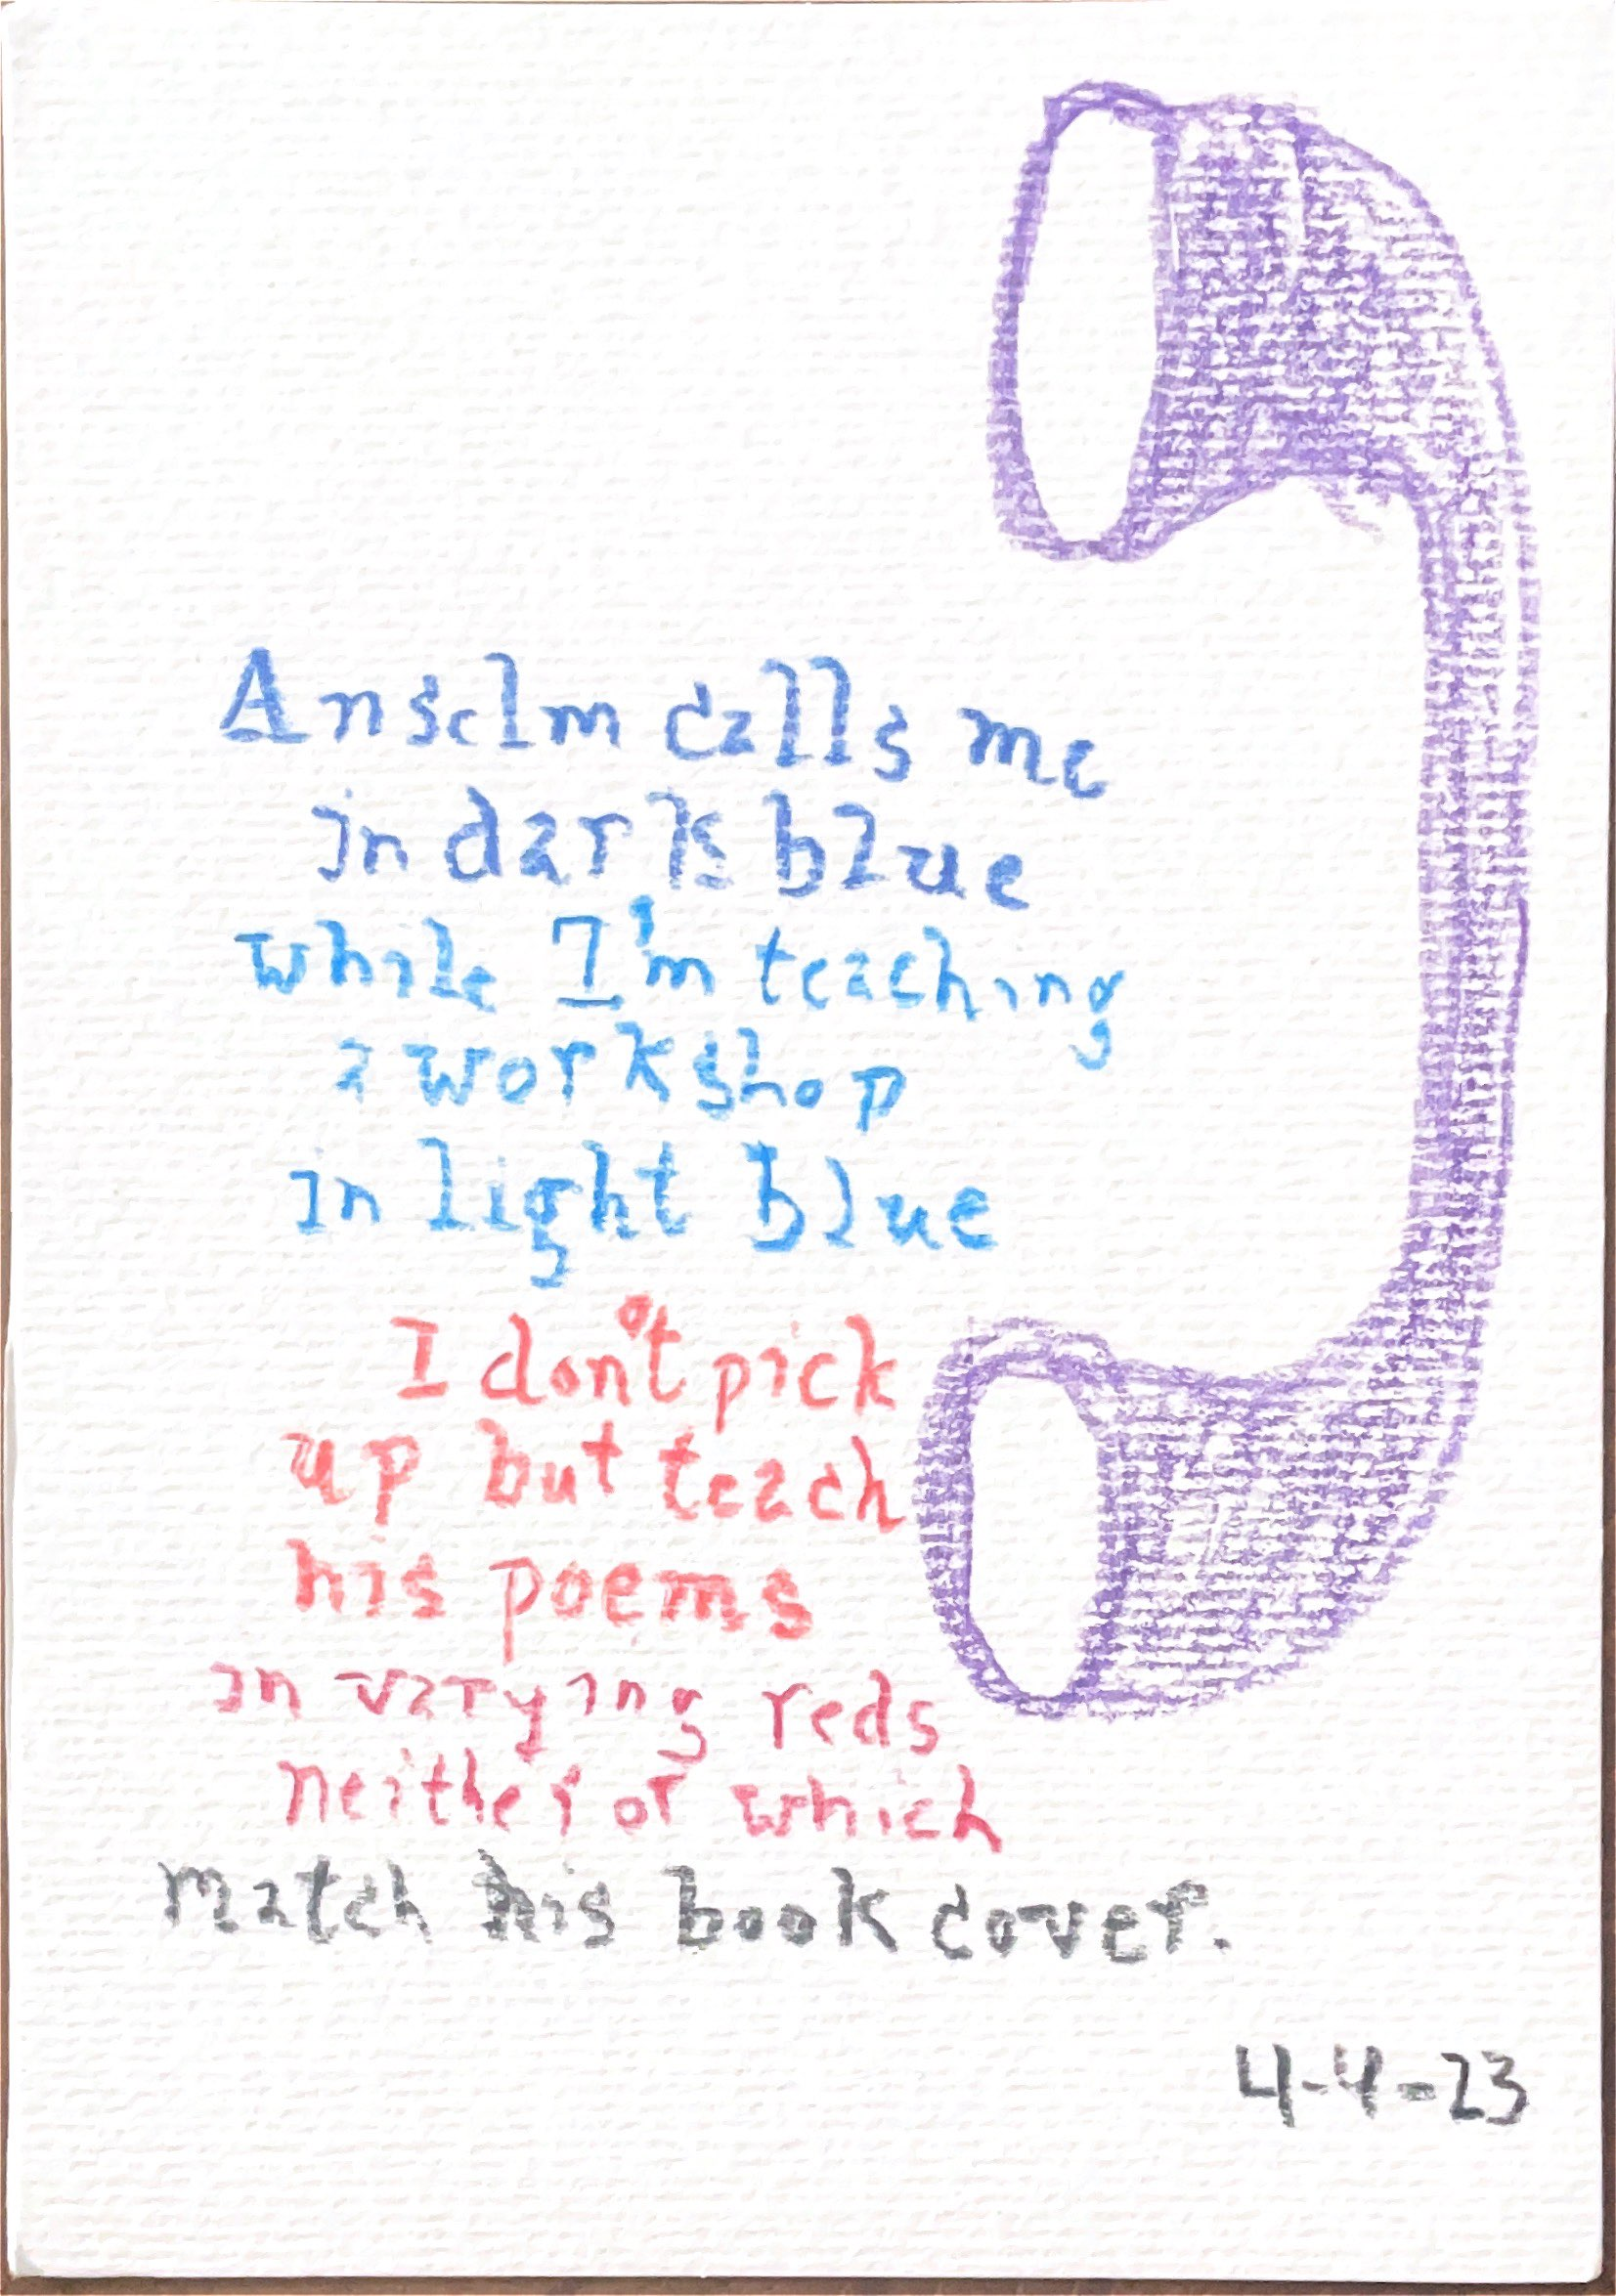 Anselm calls me
in dark blue
while I'm teaching
a workshop
in light blue
I don't pick
up but teach
his poems
in varying reds
neither of which
match his book cover.
4-4-23